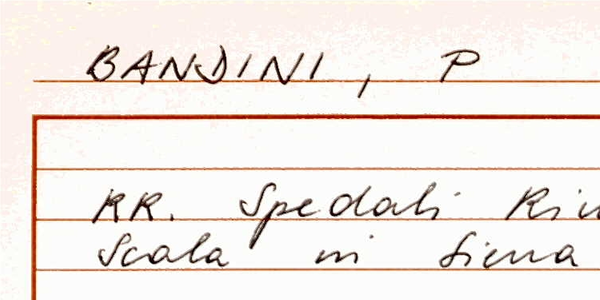 BANDINI, P
RR. Spedali
Scala in Siena